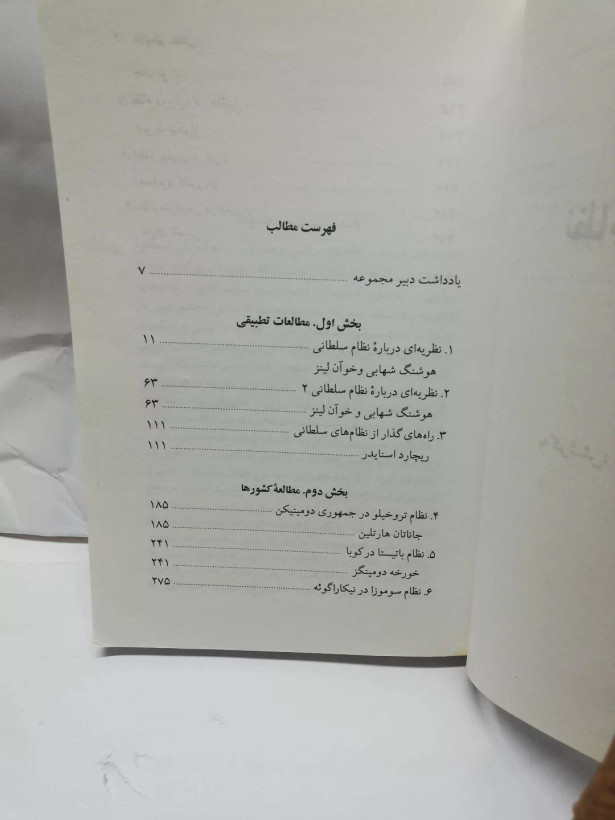 فهرست مطالب
یادداشت دبیر مجموعه ........................ ۷
بخش اول. مطالعات تطبیقی
۱. نظریه‌ای دربارهٔ نظام سلطانی ........................ ۱۱
هوشنگ شهابی وخوآن لینز
۲. نظریه‌ای دربارهٔ نظام سلطانی ۲ ........................ ۶۳
هوشنگ شهابی و خوآن لینز ........................ ۶۳
۳. راه‌های گذار از نظام‌های سلطانی ........................ ۱۱۱
ریچارد اسنایدر ........................ ۱۱۱
بخش دوم. مطالعهٔ کشورها
۴. نظام تروخیلو در جمهوری دومینیکن ........................ ۱۸۵
جاناتان هارتلین ........................ ۱۸۵
۵. نظام باتیستا در کوبا ........................ ۲۴۱
خورخه دومینگز ........................ ۲۴۱
۶. نظام سوموزا در نیکاراگوئه ........................ ۲۷۵